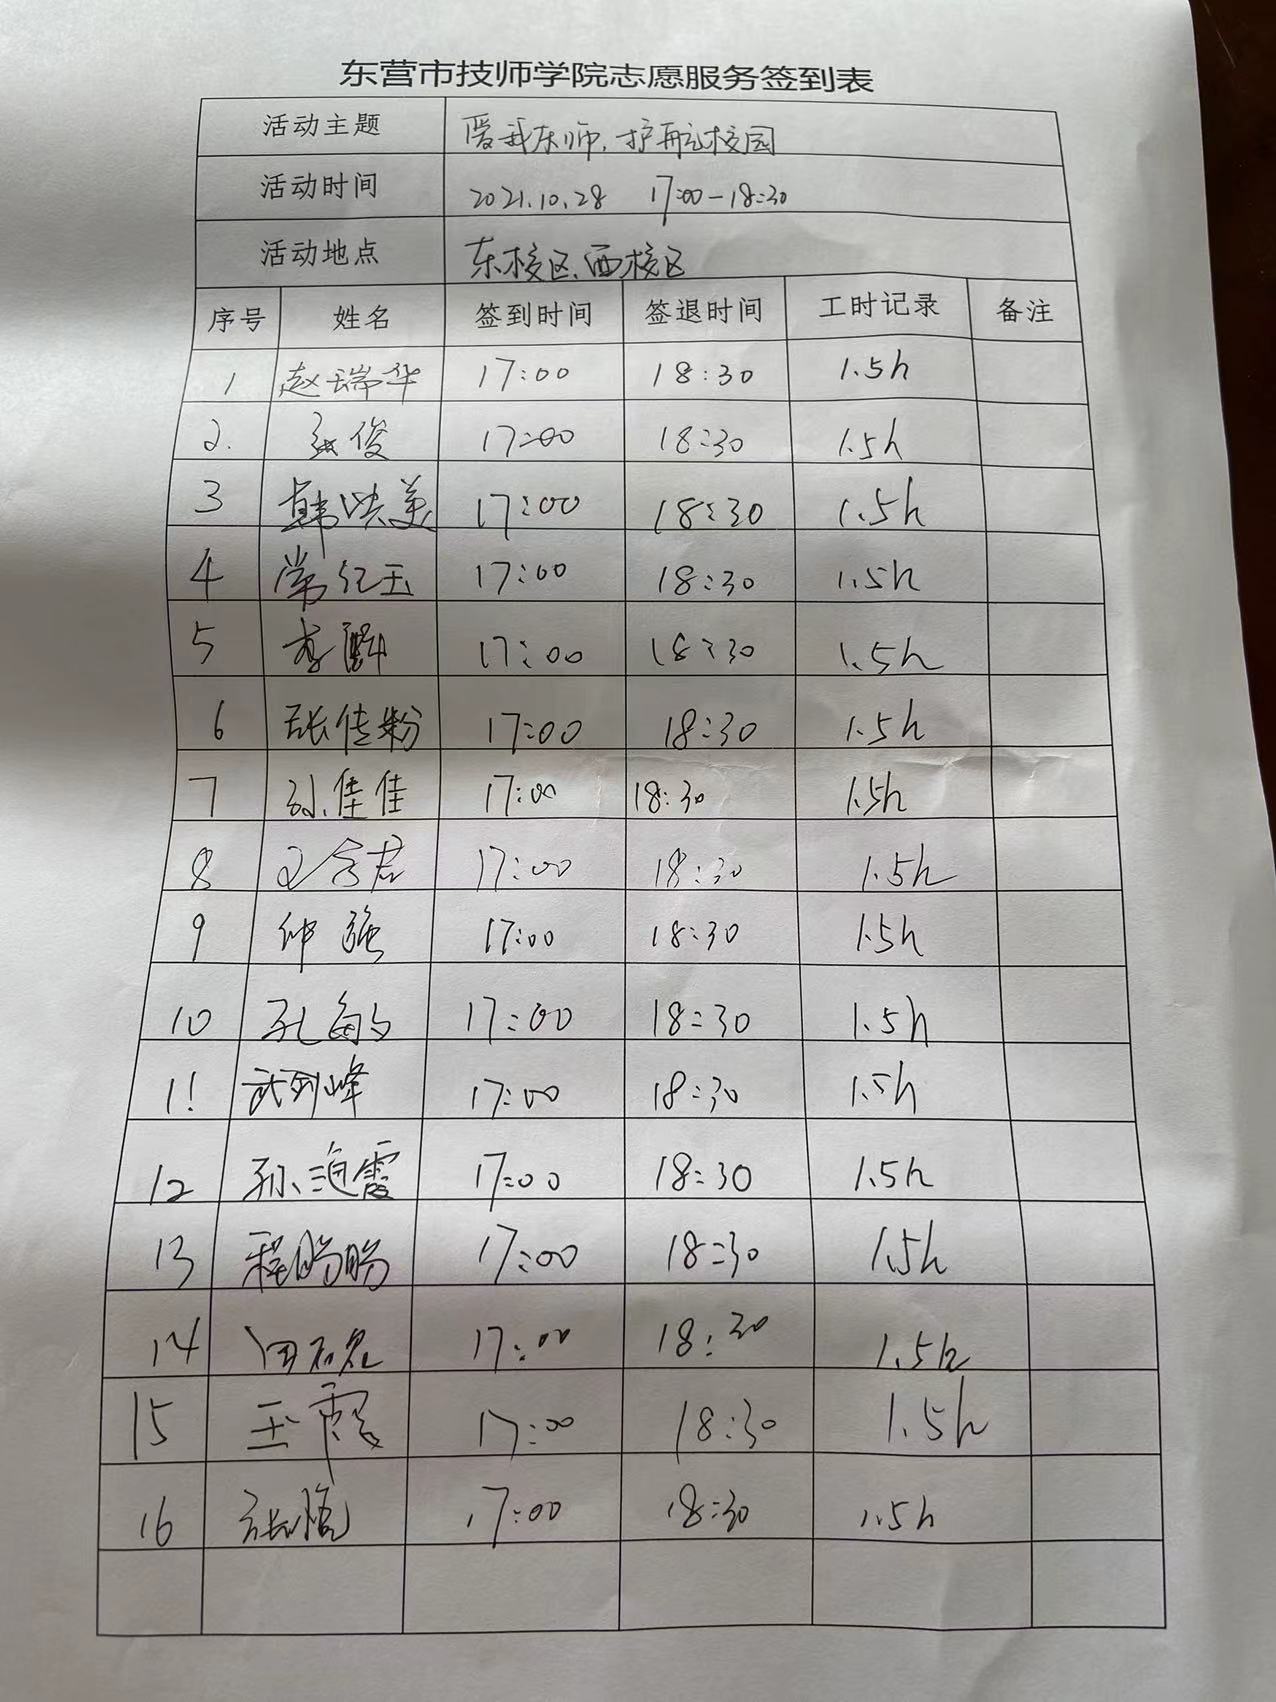 东营市技师学院志愿服务签到表
活动主题 爱我东师,护航校园
活动时间 2021.10.28 17:00-18:30
活动地点 东校区、西校区
序号 姓名 签到时间 签退时间 工时记录 备注
1 赵瑞华 17:00 18:30 1.5h
2. 张俊 17:00 18:30 1.5h
3 韩洪美 17:00 18:30 1.5h
4 常红玉 17:00 18:30 1.5h
5 李 17:00 18:30 1.5h
6 张佳粉 17:00 18:30 1.5h
7 孙佳佳 17:00 18:30 1.5h
8 17:00 18:30 1.5h
9 仲强 17:00 18:30 1.5h
10 孔 17:00 18:30 1.5h
11 武列峰 17:00 18:30 1.5h
12 孙 霞 17:00 18:30 1.5h
13 程 17:00 18:30 1.5h
14 17:00 18:30 1.5h
15 王霞 17:00 18:30 1.5h
16 张 17:00 18:30 1.5h